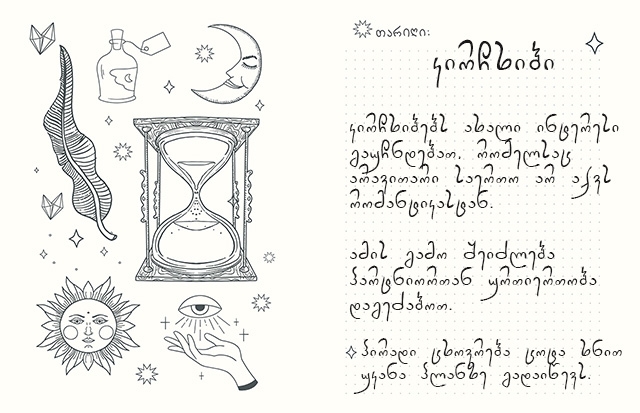 თარიღი:
კირჩხიბი
კირჩხიბებს ახალი ინტერესი
გაუჩნდებათ. რომელსაც
არავითარი საერთო არ აქვს
რომანტიკასტან.
ამის გამო შეიძლება
პარტნიორთან ურთიერთობა
დაგეძაბოთ.
პირადი ცხოვრება ცოტა ხნით
უკანა პლანზე გადაიწევს.